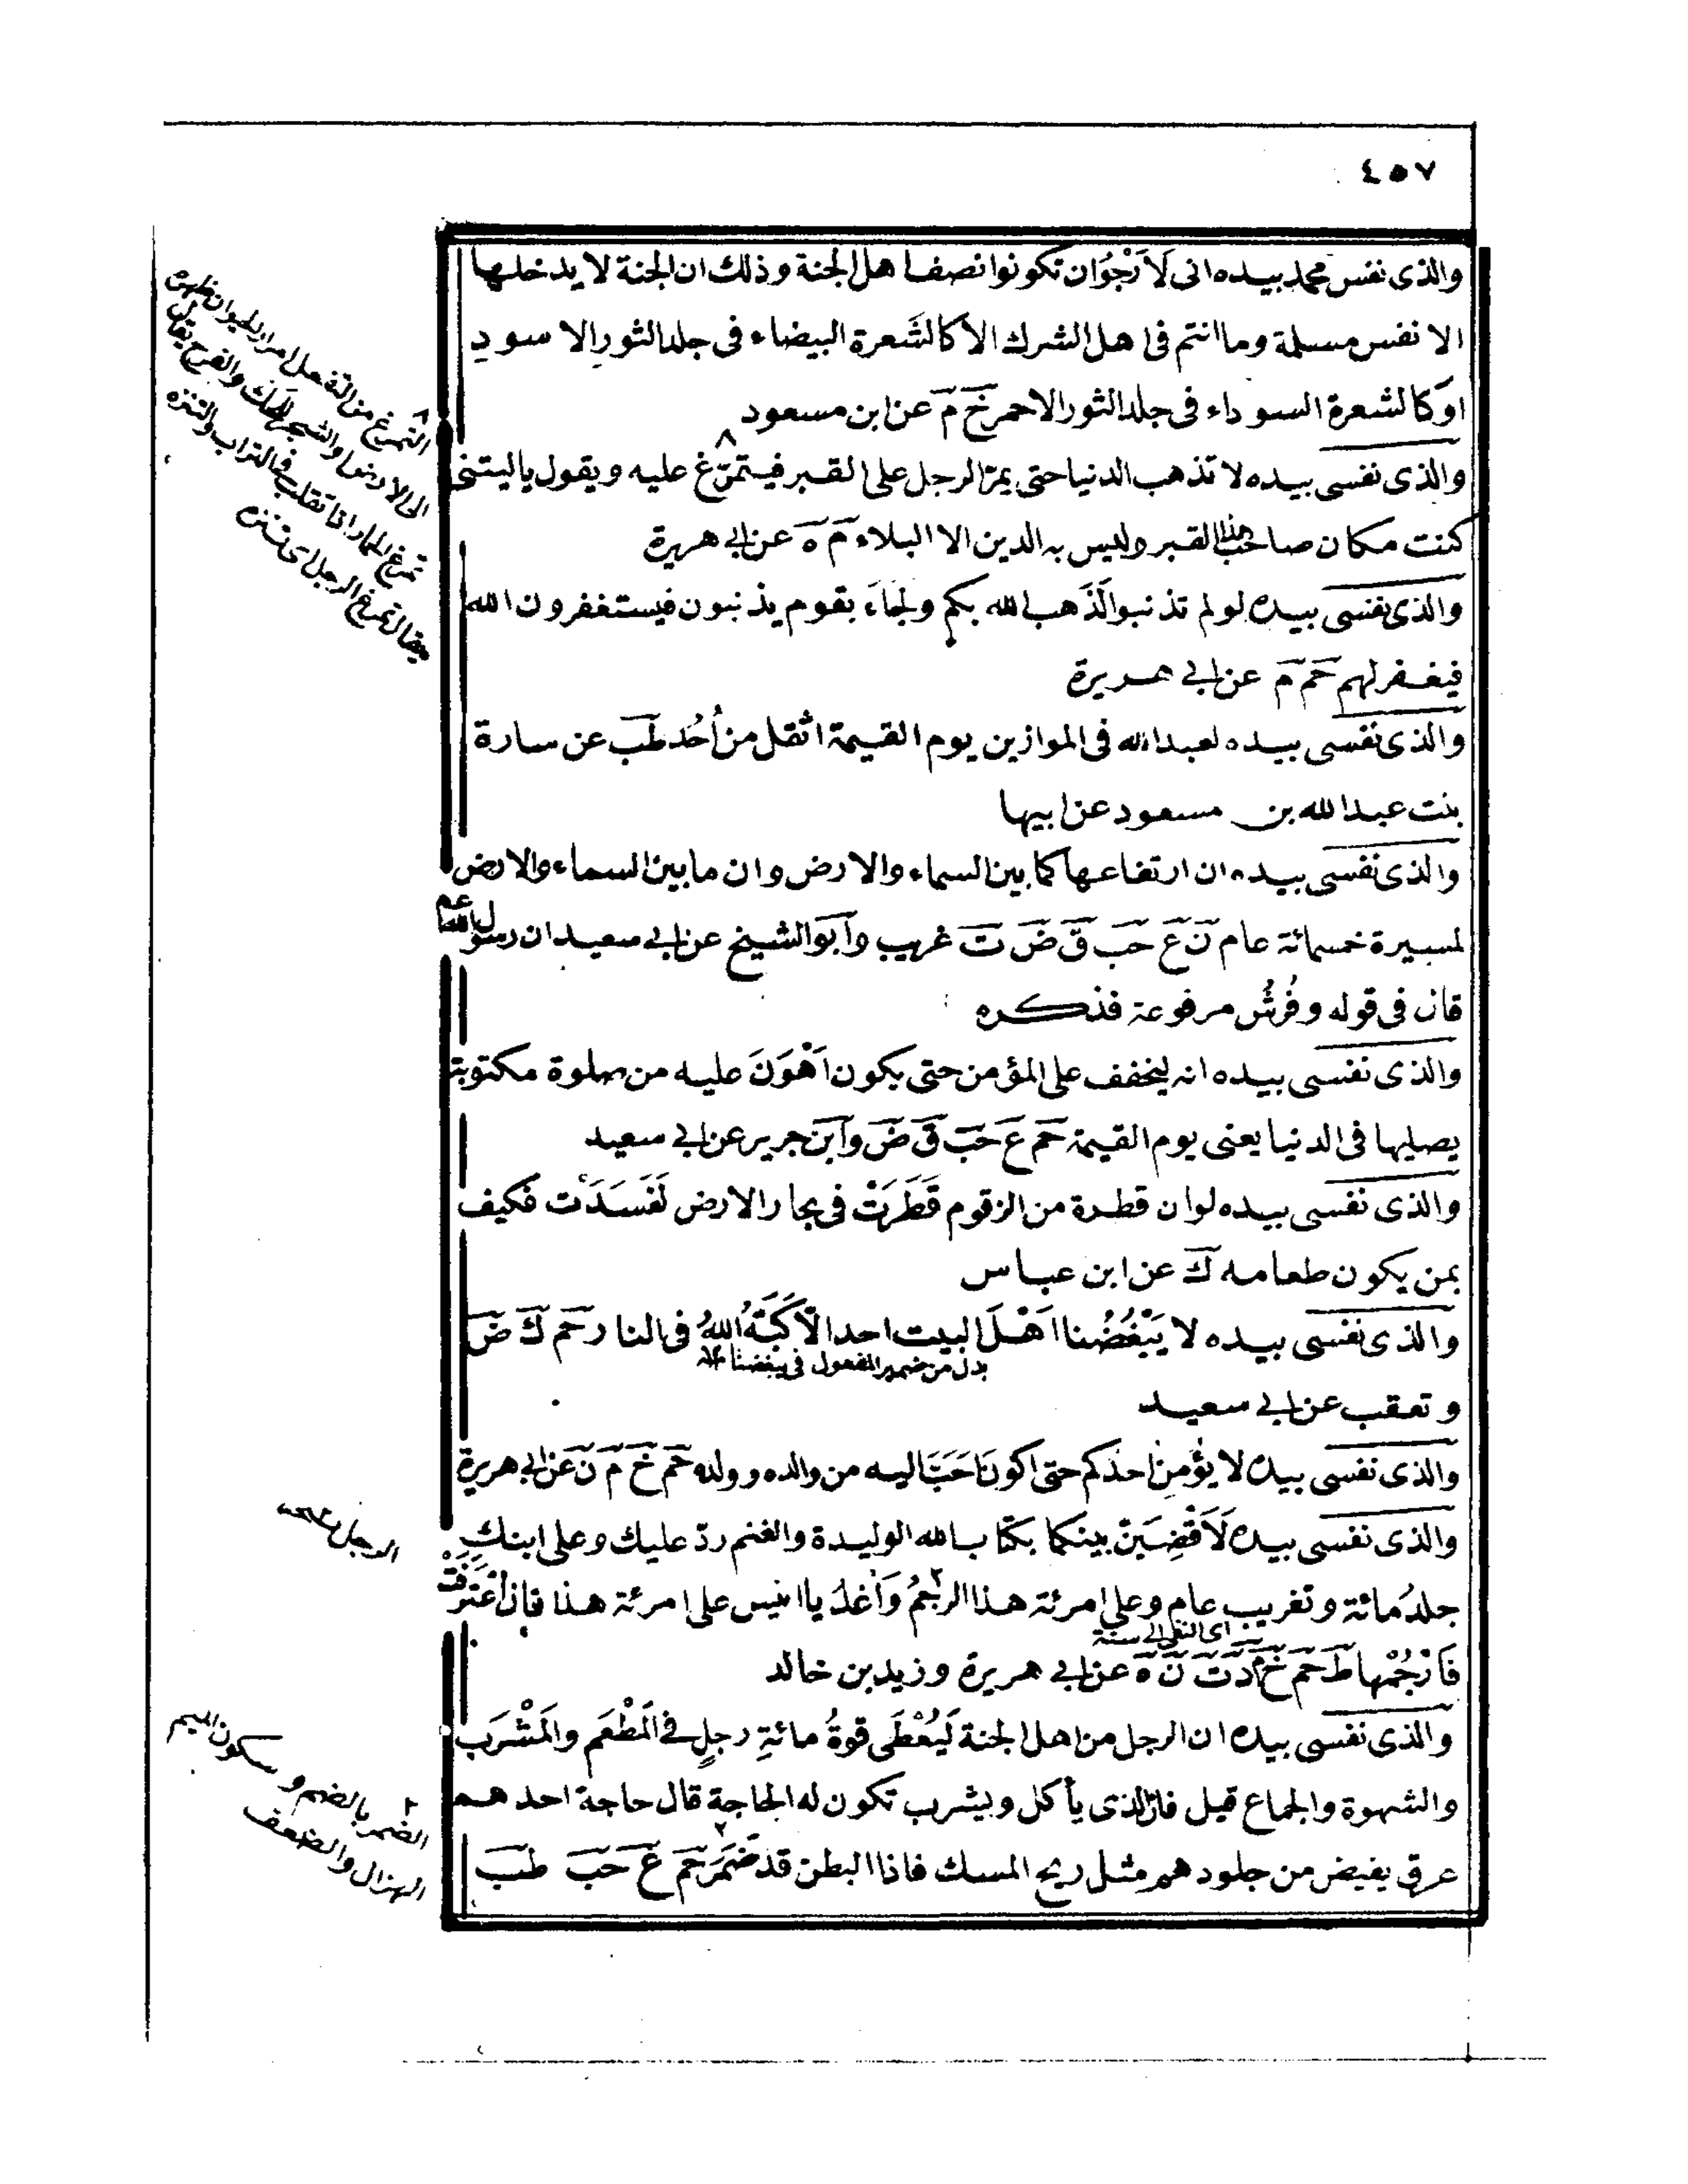 ٤٥٧
والذى نفس محمد بيده انى لَاَرْجُوَان تكونوا نصف اهل الجنة وذلك ان الجنة لا يدخلها
الا نفس مسلمة وما انتم فى اهل الشرك الا كالشَعرة البيضاء فى جلد الثور الاسودِ
اوكا لشعرة السوداء فى جلد الثور الاحمر خ م عن ابن مسعود
والذى نفسى بيده لا تذهب الدنيا حتى يمرّ الرجل على القبر فيتمرّغ عليه ويقول ياليتنى
كنت مكان صاحب هذا القبر وليس به الدين الا البلاء م ه عن ابى هريرة
والذى نفسى بيده لو لم تذنبوا لَذَهب الله بكم ولجَاءَ بقوم يذنبون فيستغفرون الله
فيغفر لهم حم م عن ابى هريرة
والذى نفسى بيده لعبد الله فى الموازين يوم القيمة اثقل من اُحُد طب عن سارة
بنت عبد الله بن مسعود عن ابيها
والذى نفسى بيده ان ارتفاعها كما بين السماء والارض وان ما بين السماء والارض
لمسيرة خمسمائة عام ن ع حب ق ض ت غريب وابو الشيخ عن ابى سعيد ان رسول الله عم
قال فى قوله وفُرُشٍ مرفوعة فذكره
والذى نفسى بيده انه ليخفف على المؤمن حتى يكون اَهْوَنَ عليه من صلوة مكتوبة
يصليها فى الدنيا يعنى يوم القيمة حم ع حب ق ض وابن جرير عن ابى سعيد
والذى نفسى بيده لو ان قطرة من الزقوم قَطَرَتْ فى بحار الارض لَفَسَدَتْ فكيف
بمن يكون طعامه ك عن ابن عباس
والذى نفسى بيده لا يَبْغُضُنا اَهْلَ البيت احد الاّ كَبَّهُ اللهُ فى النار حم ك ض
بدل من ضمير المفعول فى يبغضنا
وتعقب عن ابى سعيد
والذى نفسى بيده لا يؤمن احدكم حتى اكون اَحَبَّ اليه من والده وولده حم خ م ن عن ابى هريرة
والذى نفسى بيده لَاَقْضِيَنّ بينكما بكتاب الله الوليدة والغنم ردّ عليك وعلى ابنكِ
جلدُ مائة وتغريب عام وعلى امرئة هذا الرجمُ وَاغْدُ يا انيس على امرئة هذا فان اعْتَرَفَتْ
اى النفى الى سنة
فَارْجُمْها ط حم خ م د ت ن ه عن ابى هريرة وزيد بن خالد
والذى نفسى بيده ان الرجل من اهل الجنة لَيُعْطَى قوةُ مائةِ رجلٍ فى المَطْعَم والمَشْرَب
والشهوة والجماع قيل فان الذى يأكل ويشرب تكون له الحاجة قال حاجة احدهم
عرق يفيض من جلودهم مثل ريح المسك فاذا البطن قد ضَمَرَ حم ع حب طب
التمرغ من التفعل امرار الحيوان ظهره
تمرغ الحمار اذا تقلب فى التراب والتنزه
يقال تمرغ الرجل اى تنزه
الرجل
الضمر بالضم وسكون الميم
الهزال والضعف